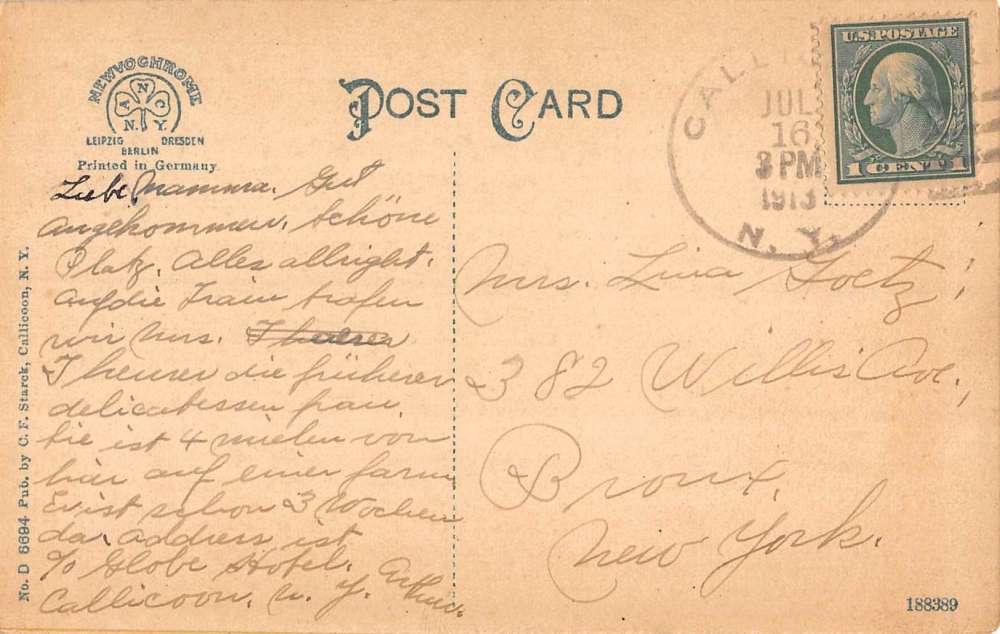 NEWVOCHROME
A N C
N. Y.
LEIPZIG DRESDEN
BERLIN
Printed in Germany
POST CARD
U.S. POSTAGE
1 CENT 1
JUL
16
3 PM
1913
N. Y.
Liebe Mamma. Gut
angekommen. Schöne
Platz. Alles allright.
Auf die Train trafen
wir Mrs.
Theurer die früherer
delicatessen frau.
Sie ist 4 mielen von
hier auf einer farm
Er ist schon 3 Wochen
da. Address ist
c/o Globe Hotel.
Callicoon, N. Y.
Mrs. Lina Goetz,
382 Willis Ave.,
Bronx,
New York.
No. D 6694 Pub. by C. F. Starck, Callicoon, N. Y.
188389